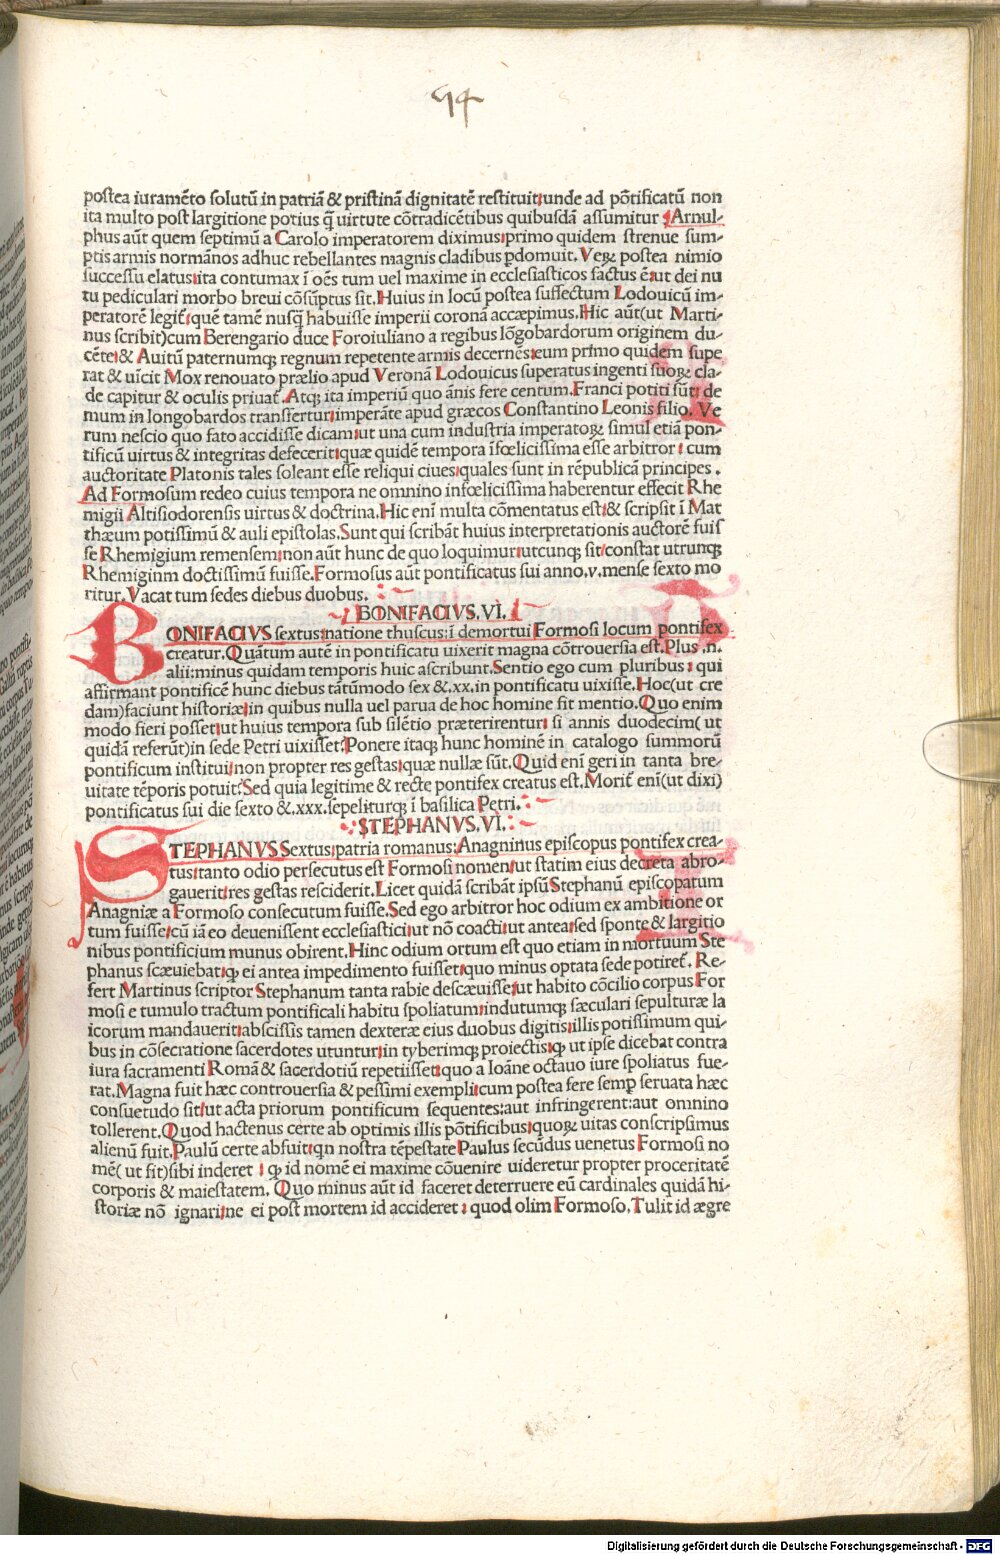 94
postea iuramēto solutū in patriā & pristinā dignitatē restituit:unde ad pōtificatū non
ita multo post largitione potius q̄ uirtute cōtradicētibus quibusdā assumitur :Arnul-
phus aūt quem septimū a Carolo imperatorem diximus:primo quidem strenue sum-
ptis armis normānos adhuc rebellantes magnis cladibus pdomuit. Veꝝ postea nimio
successu elatus:ita contumax ī oēs tum uel maxime in ecclesiasticos factus ē:ut dei nu
tu pediculari morbo breui cōsūptus sit. Huius in locū postea suffectum Lodouicū im-
peratorē legit̄:quē tamē nusq̄ habuisse imperii coronā accæpimus.Hic aūt(ut Marti-
nus scribit)cum Berengario duce Foroiuliano a regibus lōgobardorum originem du-
cēte:& Auitū paternumqꝫ regnum repetente armis decernēs:eum primo quidem supe
rat & uīcit Mox renouato prælio apud Veronā Lodouicus superatus ingenti suoꝝ cla-
de capitur & oculis priuat̄. Atqꝫ ita imperiū quo ānis fere centum.Franci potiti sūt: de
mum in longobardos transfertur:imperāte apud græcos Constantino Leonis filio. Ve
rum nescio quo fato accidisse dicam:ut una cum industria imperatoꝝ simul etiā pon-
tificū uirtus & integritas defecerit:quæ quidē tempora īfœlicissima esse arbitror : cum
auctoritate Platonis tales soleant esse reliqui ciues:quales sunt in rēpublicā principes .
Ad Formosum redeo cuius tempora ne omnino infœlicissima haberentur effecit Rhe
migii Altisiodorensis uirtus & doctrina.Hic enī multa cōmentatus est:& scripsit ī Mat
thæum potissimū & auli epistolas.Sunt qui scribāt huius interpretationis auctorē fuis
se Rhemigium remensem:non aūt hunc de quo loquimur:utcunqꝫ sit:constat utrunqꝫ
Rhemiginm doctissimū fuisse.Formosus aūt pontificatus sui anno.v.mense sexto mo
ritur.Vacat tum sedes diebus duobus.
BONIFACIVS.VI.
BONIFACIVS sextus:natione thuscus:ī demortui Formosi locum pontifex
creatur.Quātum autē in pontificatu uixerit magna cōtrouersia est.Plus .n.
alii:minus quidam temporis huic ascribunt.Sentio ego cum pluribus : qui
affirmant pontificē hunc diebus tātūmodo sex &.xx.in pontificatu uixisse.Hoc(ut cre
dam)faciunt historiæ:in quibus nulla uel parua de hoc homine fit mentio.Quo enim
modo fieri posset:ut huius tempora sub silētio præterirentur: si annis duodecim( ut
quidā referūt)in sede Petri uixisset:Ponere itaqꝫ hunc hominē in catalogo summorū
pontificum institui:non propter res gestas:quæ nullæ sūt.Quid enī geri in tanta bre-
uitate tēporis potuit:Sed quia legitime & recte pontifex creatus est.Morit̄ enī(ut dixi)
pontificatus sui die sexto &.xxx.sepeliturqꝫ ī basilica Petri.
STEPHANVS.VI.
STEPHANVS Sextus:patria romanus:Anagninus episcopus pontifex crea-
tus:tanto odio persecutus est Formosi nomen:ut statim eius decreta abro-
gauerit:res gestas resciderit.Licet quidā scribāt ipsū Stephanū episcopatum
Anagniæ a Formoso consecutum fuisse.Sed ego arbitror hoc odium ex ambitione or
tum fuisse:cū iā eo deuenissent ecclesiastici:ut nō coacti:ut antea:sed sponte & largitio
nibus pontificium munus obirent.Hinc odium ortum est quo etiam in mortuum Ste
phanus scæuiebat:qꝫ ei antea impedimento fuisset:quo minus optata sede potiret̄. Re-
fert Martinus scriptor Stephanum tanta rabie descæuisse:ut habito cōcilio corpus For
mosi e tumulo tractum pontificali habitu spoliatum:indutumqꝫ sæculari sepulturæ la
icorum mandauerit:abscissis tamen dexteræ eius duobus digitis:illis potissimum qui-
bus in cōsecratione sacerdotes utuntur:in tyberimqꝫ proiectis:qꝫ ut ipse dicebat contra
iura sacramenti Romā & sacerdotiū repetiisset:quo a Ioāne octauo iure spoliatus fue-
rat.Magna fuit hæc controuersia & pessimi exempli:cum postea fere semp seruata hæc
consuetudo sit:ut acta priorum pontificum sequentes:aut infringerent:aut omnino
tollerent.Quod hactenus certe ab optimis illis pōtificibus:quoꝝ uitas conscripsimus
alienū fuit.Paulū certe absuit:qn nostra tēpestate Paulus secūdus uenetus Formosi no
mē( ut fit)sibi inderet : qꝫ id nomē ei maxime cōuenire uideretur propter proceritatē
corporis & maiestatem. Quo minus aūt id faceret deterruere eū cardinales quidā hi-
storiæ nō ignari:ne ei post mortem id accideret : quod olim Formoso.Tulit id ægre
Digitalisierung gefördert durch die Deutsche Forschungsgemeinschaft - DFG